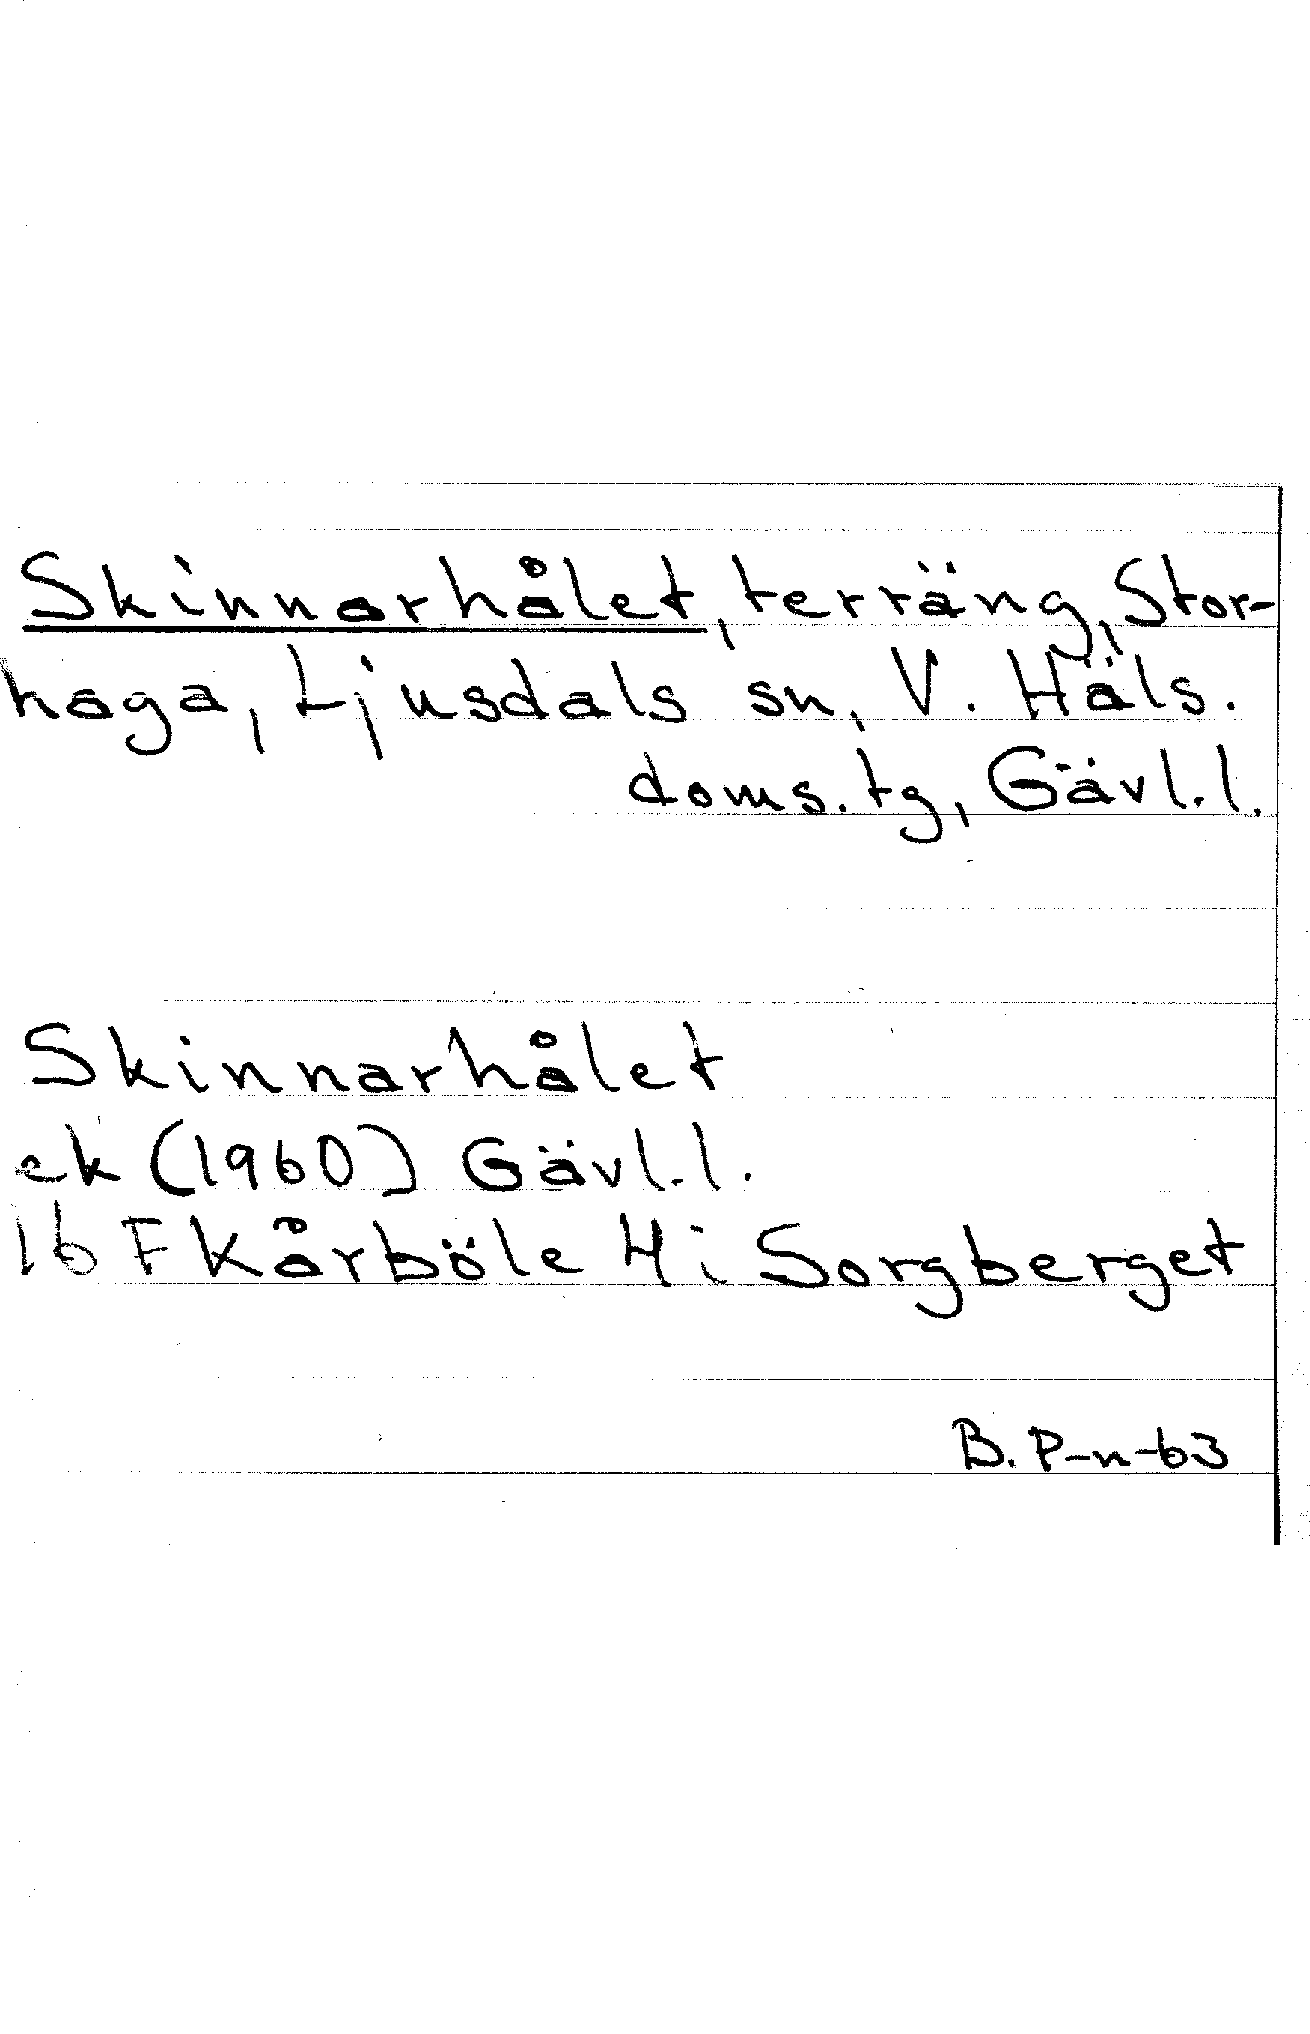 Skinnarhålet, terräng, Stor-
haga, Ljusdals sn, V. Häls.
doms. tg, Gävl. l.
Skinnarhålet
ek (1960) Gävl. l.
16 F Kårböle 4 i Sorgberget
B. P-n-63